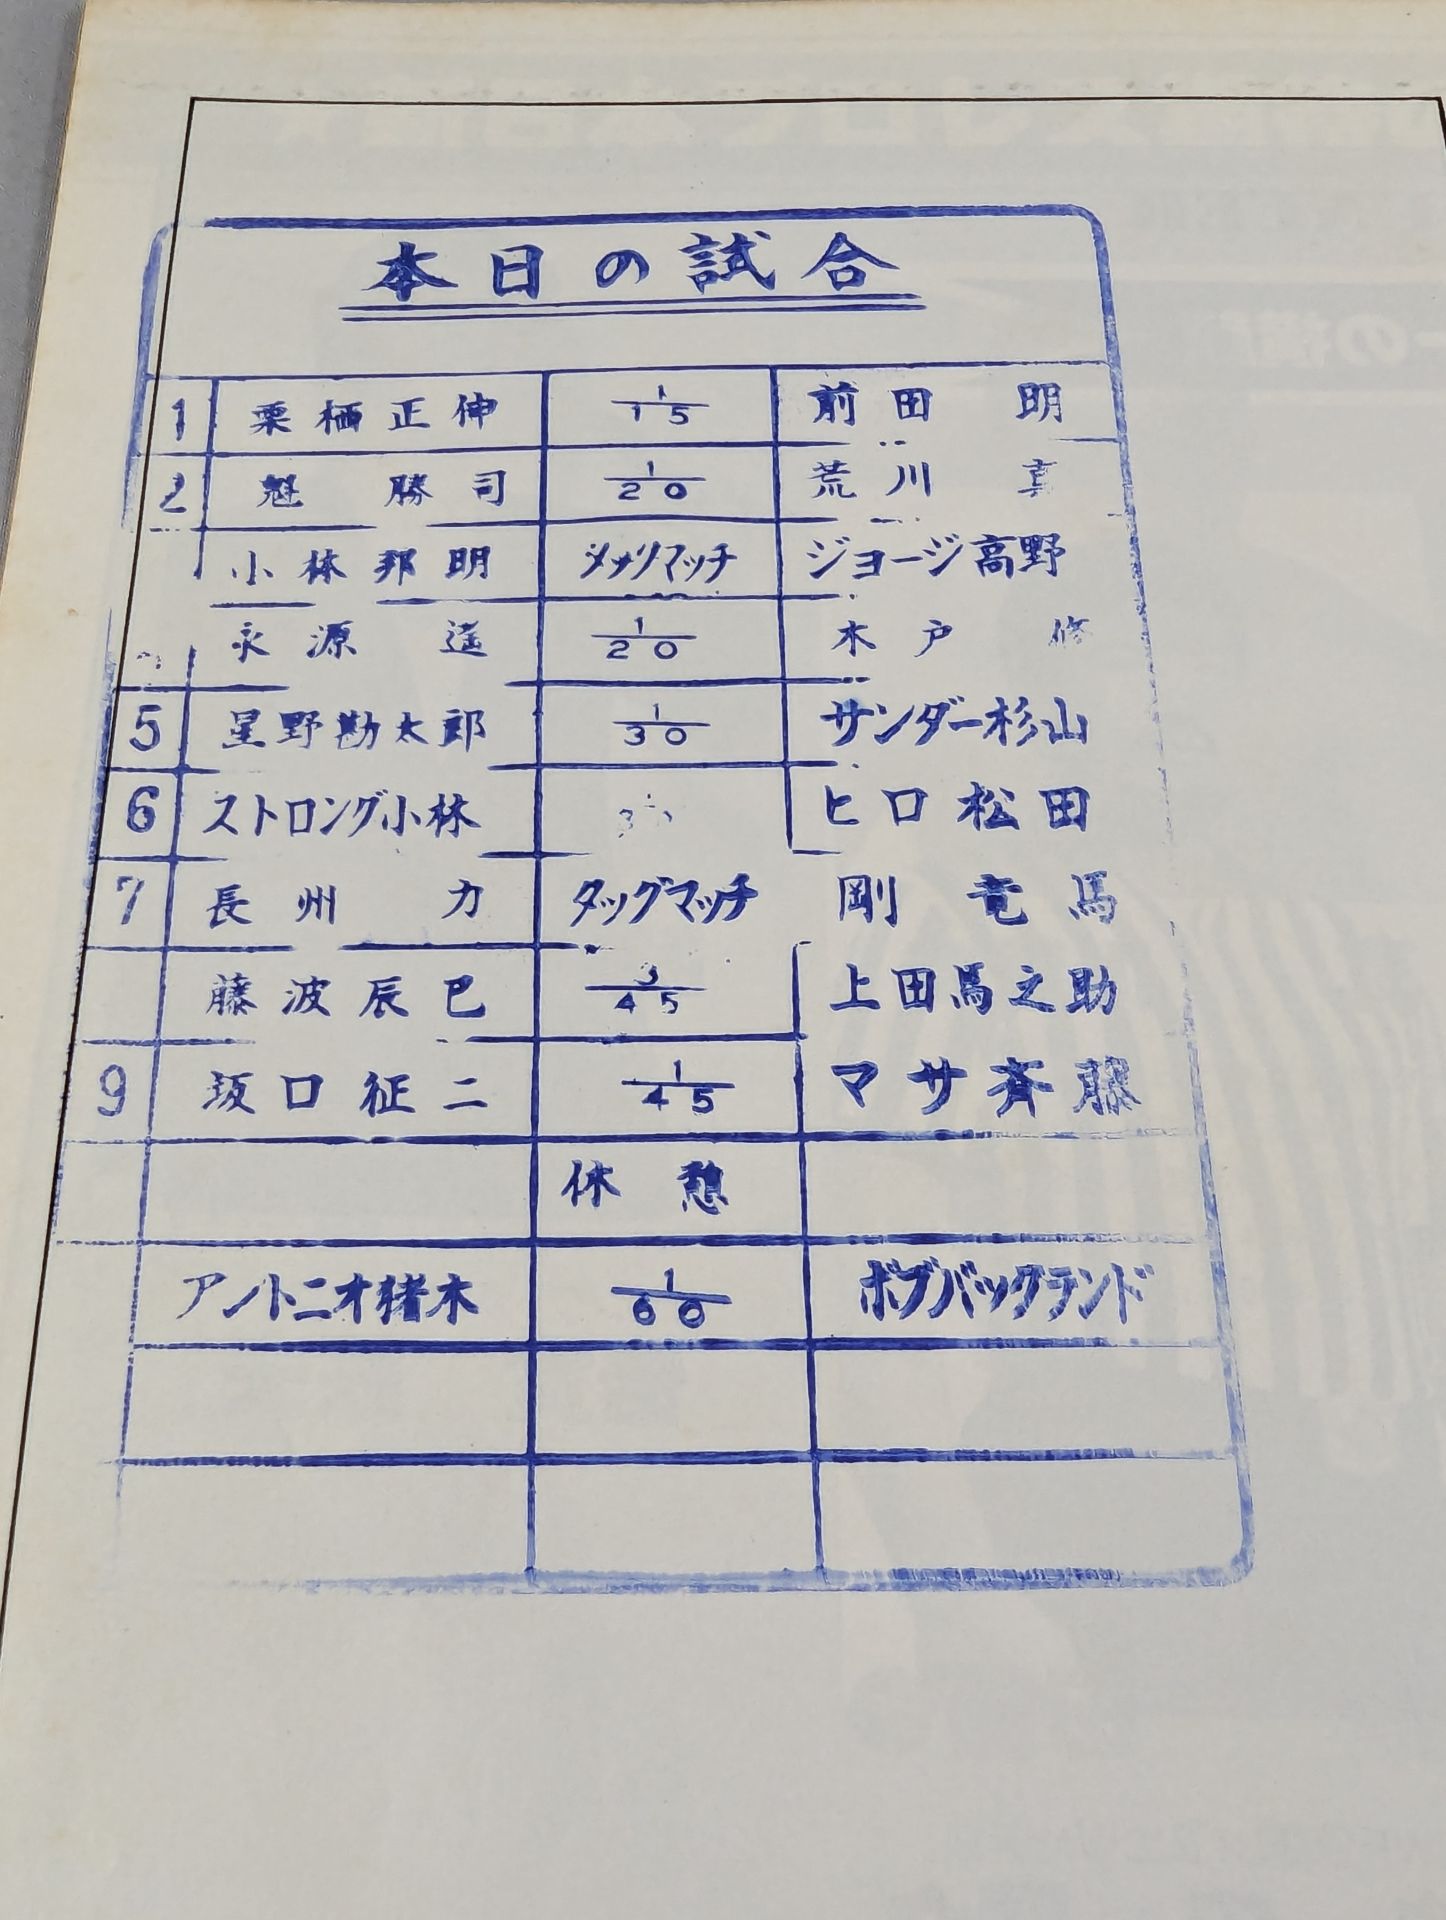 本日の試合
1 栗栖正伸 1/15 前田 明
2 魁 勝司 1/20 荒川 真
小林邦明 マッチ ジョージ高野
永源 遙 1/20 木戸 修
5 星野勘太郎 1/30 サンダー杉山
6 ストロング小林 ヒロ松田
7 長州 力 タッグマッチ 剛 竜馬
藤波辰巳 3/45 上田馬之助
9 坂口征二 1/45 マサ斉藤
休憩
アントニオ猪木 1/60 ボブバックランド